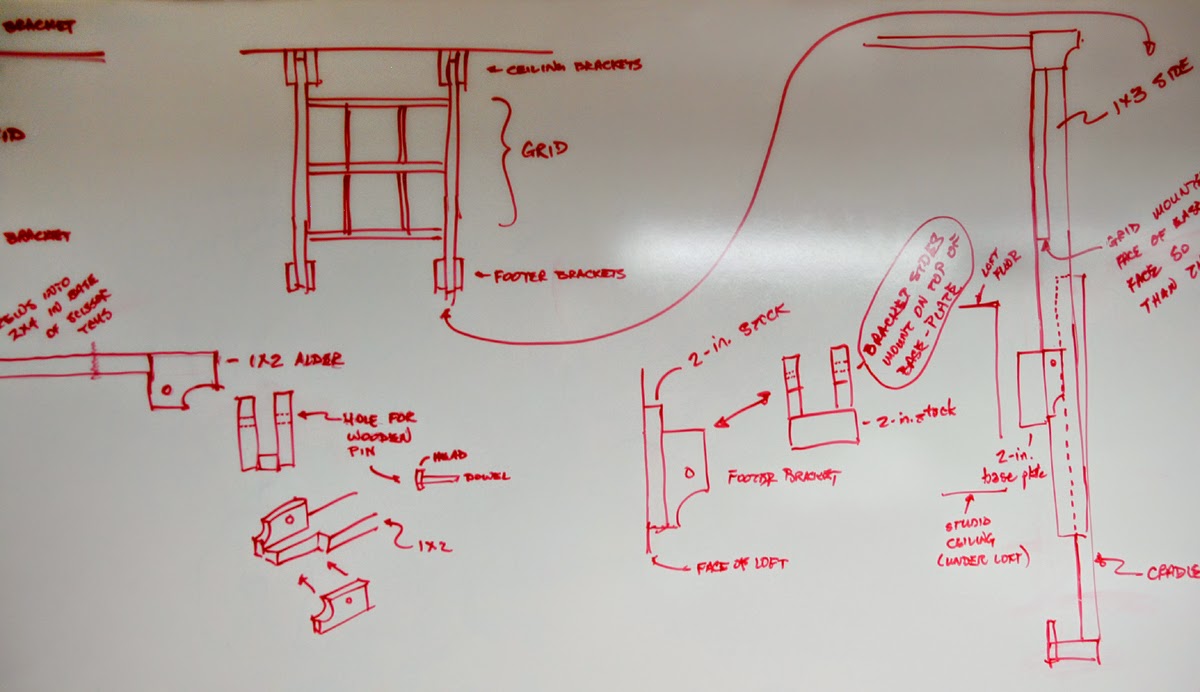 BRACKET
BRACKET
INTO
2X4 IN BASE
OF SCISSOR
1X2 ALDER
← CEILING BRACKETS
GRID
← FOOTER BRACKETS
HOLE FOR
WOODEN
PIN
HEAD
DOWEL
1X2
2-in. STOCK
BRACKET SIDES
MOUNT ON TOP OF
BASE-PLATE
2-in. stock
FOOTER BRACKET
FACE OF LOFT
LOFT
FLOOR
2-in.
base plate
STUDIO
CEILING
(UNDER LOFT)
1X3 SIDE
GRID MOUNTE
FACE OF
FACE SO
THAN
CRADLE